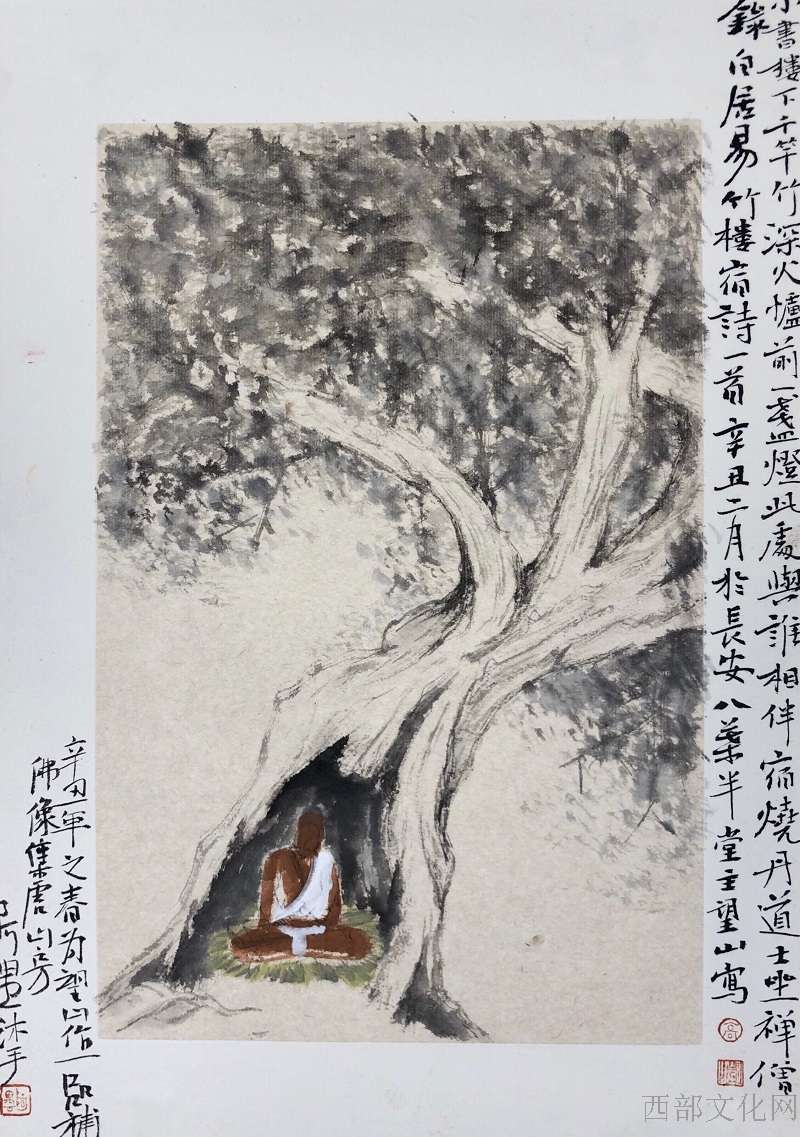 小書樓下千竿竹深火爐前一盞燈此處與誰相伴宿燒丹道士坐禪僧
錄白居易竹樓宿詩一首辛丑二月於長安八葉半堂主望山寫
高
辛丑年之春为望山作一即補
佛像集山房
沐手
西部文化网